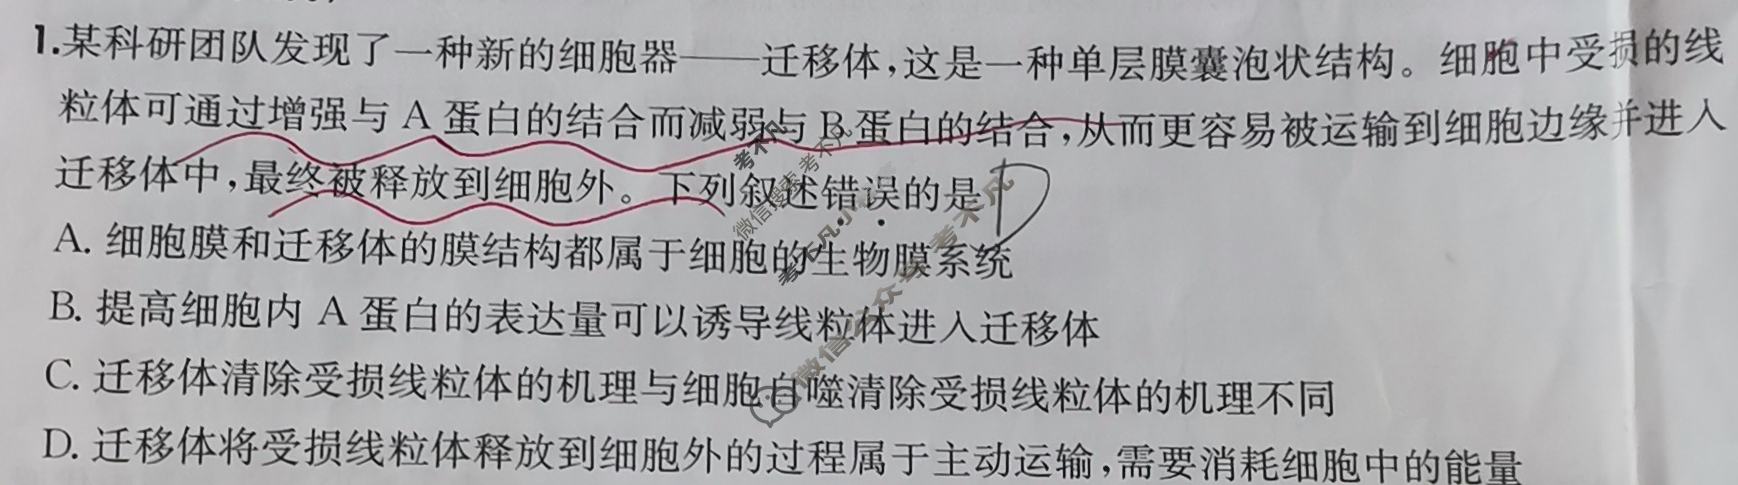 1.某科研团队发现了一种新的细胞器——迁移体,这是一种单层膜囊泡状结构。细胞中受损的线
粒体可通过增强与 A 蛋白的结合而减弱与 B 蛋白的结合,从而更容易被运输到细胞边缘并进入
迁移体中,最终被释放到细胞外。下列叙述错误的是 D
A. 细胞膜和迁移体的膜结构都属于细胞的生物膜系统
B. 提高细胞内 A 蛋白的表达量可以诱导线粒体进入迁移体
C. 迁移体清除受损线粒体的机理与细胞自噬清除受损线粒体的机理不同
D. 迁移体将受损线粒体释放到细胞外的过程属于主动运输,需要消耗细胞中的能量